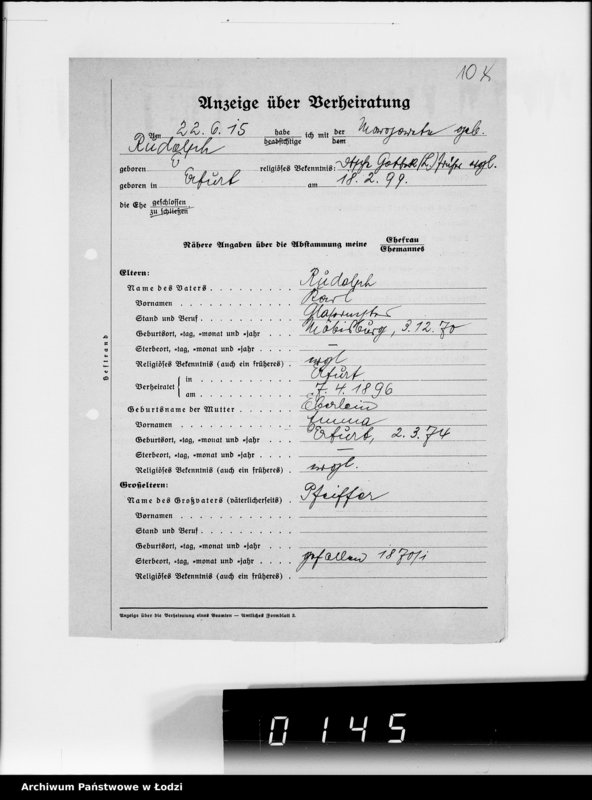 10
Anzeige über Verheiratung
Am 22. 6. 15 habe beabsichtige ich mit der dem Margarete geb.
Rudolph
geboren religiöses Bekenntnis: früher evgl.
geboren in Erfurt am 18. 2. 99.
die Ehe geschlossen zu schließen
Nähere Angaben über die Abstammung meine Ehefrau Ehemannes
Eltern:
Name des Vaters . . . . . . . . . Rudolph
Vornamen . . . . . . . . . . . Karl
Stand und Beruf . . . . . . . . . Glasermstr
Geburtsort, -tag, -monat und -jahr . . . Möbisburg, 3. 12. 70
Sterbeort, -tag, -monat und -jahr . . . . —
Religiöses Bekenntnis (auch ein früheres) . . evgl
Verheiratet { in . . . . . . . . . . . Erfurt
am . . . . . . . . . . . 7. 4. 1896
Geburtsname der Mutter . . . . . . Eberlein
Vornamen . . . . . . . . . . . Emma
Geburtsort, -tag, -monat und -jahr . . . Erfurt, 2. 3. 74
Sterbeort, -tag, -monat und -jahr . . . . —
Religiöses Bekenntnis (auch ein früheres) . evgl.
Großeltern:
Name des Großvaters (väterlicherseits) . Pfeiffer
Vornamen . . . . . . . . . . .
Stand und Beruf . . . . . . . . .
Geburtsort, -tag, -monat und -jahr . . .
Sterbeort, -tag, -monat und -jahr . . . . gefallen 1870/1
Religiöses Bekenntnis (auch ein früheres) .
Anzeige über die Verheiratung eines Beamten — Amtliches Formblatt 3.
Heftrand
0145
Archiwum Państwowe w Łodzi